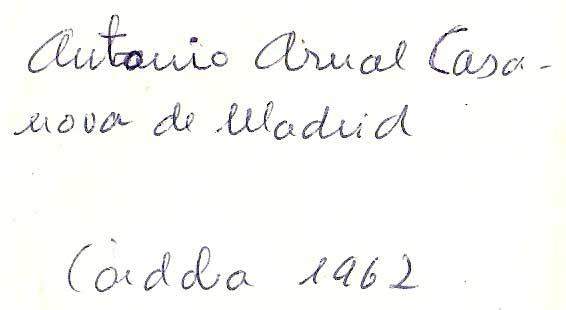 Antonio Arnal Casa-
nova de Madrid
Córdoba 1962